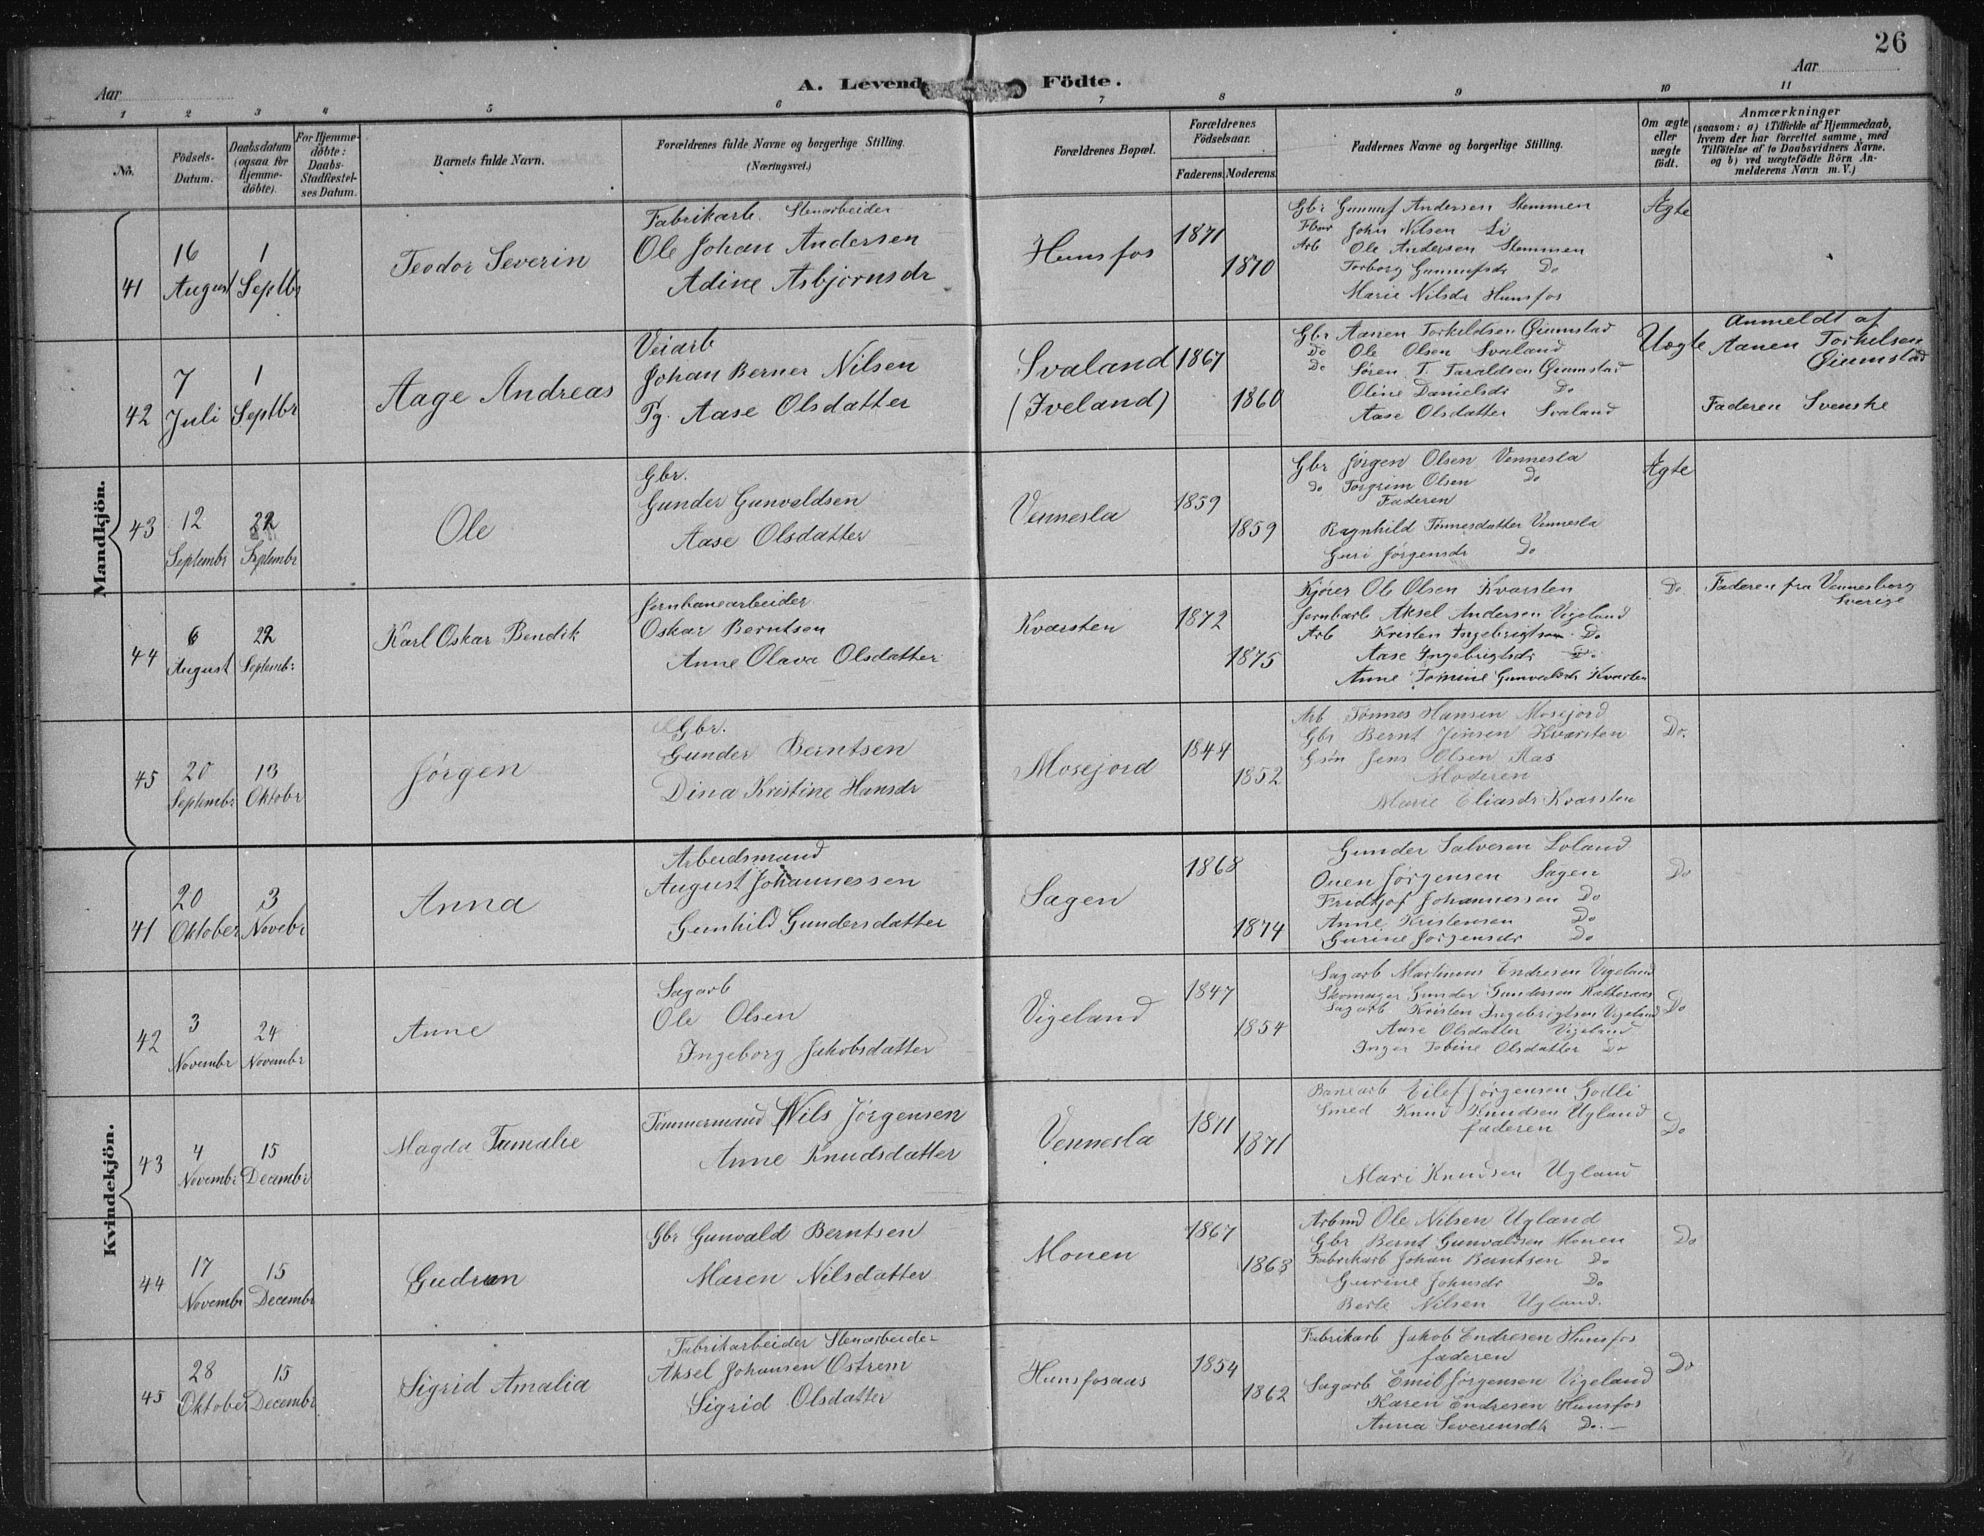 26
Aar
A. Levende Födte.
Aar
1 2 3 4 5 6 7 8 9 10 11
No.
Födsels-Datum.
Daabsdatum (ogsaa for Hjemme-döbte).
For Hjemme-döbte: Daabs-Stadfæstel-ses Datum.
Barnets fulde Navn.
Forældrenes fulde Navne og borgerlige Stilling.
(Næringsvei.)
Forældrenes Bopæl.
Forældrenes Födselsaar.
Faderens. Moderens.
Faddernes Navne og borgerlige Stilling.
Om ægte eller uægte födt.
Anmærkninger
(saasom: a) i Tilfælde af Hjemmedaab,
hvem der har forrettet samme, med
Tilföielse af to Daabsvidners Navne.
og b) ved uægtefödte Börn An-
melderens Navn m. V.)
Mandkjön.
41
16 August
1 Septbr
Teodor Severin
Fabrikarb. Stenarbeider
Ole Johan Andersen
Adine Asbjørnsdr
Hunsfos
1871
1870
Gbr Gunnuf Andersen Stemmen
John Nilsen Li
Arb Ole Andersen Stemmen
Torborg Gunnufsdr Do
Marie Nilsdr Hunsfos
Ægte
42
7 Juli
1 Septbr
Aage Andreas
Veiarb
Johan Berner Nilsen
Pg. Aase Olsdatter
Svaland
(Iveland)
1867
1860
Gbr Aanen Torkildsen Grimstad
Do Ole Olsen Svaland
Do Søren T. Taraldsen Grimstad
Oline Danielsdr Do
Aase Olsdatter Svaland
Uægte
Anmeldt af
Aanen Torkelsen
Grimstad
Faderen Svenske
43
12 Septembr
22 Septembr
Ole
Gbr.
Gunder Gunvaldsen
Aase Olsdatter
Vennesla
1859
1859
Gbr Jørgen Olsen Vennesla
Do Torgrim Olsen Do
Faderen
Ragnhild Tønnesdatter Vennesla
Guri Jørgensdr Do
Ægte
44
6 August
22 Septemb:
Karl Oskar Bendik
Jernbanearbeider
Oskar Berntsen
Anne Olava Olsdatter
Kvarsten
1872
1875
Kjører Ole Olsen Kvarsten
Jernbarb Aksel Andersen Vigeland
Arb Kristen Ingebrigtsen Do
Aase Ingebrigtsdr Do.
Anne Tomine Gunvaldsdr Kvarsten
Do
Faderen fra Vennesborg
Sverige
45
20 Septembr
13 Oktobr
Jørgen
Gbr.
Gunder Berntsen
Dina Kristine Hansdr
Mosejord
1844
1852
Arb Tønnes Hansen Mosejord
Gbr Bernt Jensen Kvarsten
Gsøn Jens Olsen Aas
Moderen
Marie Eliasdr Kvarsten
Do.
Kvindekjön.
41
20 Oktober
3 Novebr
Anna
Arbeidsmand
August Johannessen
Gunhild Gundersdatter
Sagen
1868
1874
Gunder Salvesen Loland
Onen Jørgensen Sagen
Fredtjof Johannessen Do
Anne Kristensen Do
Gurine Jørgensdr Do
Do
42
3 Novembr
24 Novembr
Anne
Sagarb
Ole Olsen
Ingeborg Jakobsdatter
Vigeland
1847
1854
Sagarb Martinus Endresen Vigeland
Skomager Gunder Gundersen Katteraas
Sagarb Kristen Ingebrigtsen Vigeland
Aase Olsdatter Vigeland
Inger Tobine Olsdatter Do
Do
43
4 Novembr
15 Decembr
Magda Tamalie
Tømmermand Nils Jørgensen
Anne Knudsdatter
Vennesla
1871
1871
Banearb Eilef Jørgensen Godli
Smed Knud Knudsen Ugland
faderen
Mari Knudsen Ugland
Do
44
17 Novembr
15 Decembr
Gudrun
Gbr Gunvald Berntsen
Maren Nilsdatter
Monen
1867
1863
Arbmd Ole Nilsen Ugland
Gbr Bernt Gunvaldsen Monen
Fabrikarb Johan Berntsen Do
Gurine Johnsdr Do
Berte Nilsen Ugland.
Do
45
28 Oktober
15 Decembr
Sigrid Amalia
Fabrikarbeider Stenarbeider
Aksel Johansen Ostrem
Sigrid Olsdatter
Hunsfosaas
1854
1862
Fabrikarb Jakob Endresen Hunsfos
faderen
Sagarb Emil Jørgensen Vigeland
Karen Endresen Hunsfos
Anna Severensdr Do.
Do